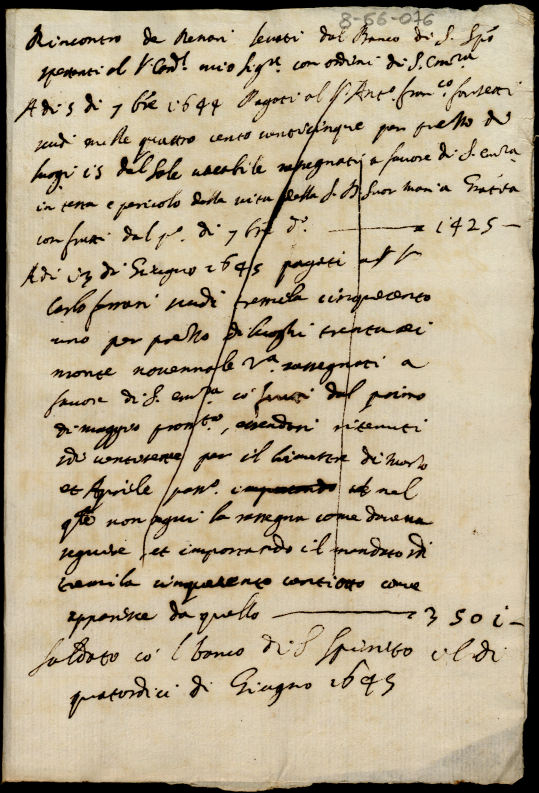 8-66-076
Rincontro de Denari levati dal Banco di S. Spo
spettanti al Sr Card.l mio Sigre con ordini di S. Emza
A di 5 di 7bre 1644 Pagati al Sr Anto Franco
scudi mille quattro cento venticinque per prezzo di
luoghi 15 del Sale vacabile rassegnati a favore di S. Emza
in testa e pericolo della vita della S. Suor Maria Gratia
con frutti dal po. di 7bre do. 1425 —
A di 13 di Giugno 1645 pagati al Sr
Carlo scudi tremila cinquecento
uno per prezzo di luoghi trentasei
monte novennale rassegnati a
favore di S. Emza co frutti dal primo
di maggio ritenuti
per il bimestre di Marzo
et Aprile nel
qle non seguì la rassegna come doveva
seguire, et importando il mandato
tremila cinquecento ventiotto come
apparisce da quello 3501 —
Saldato co l banco di S Spirito il di
quatordici di Giugno 1645